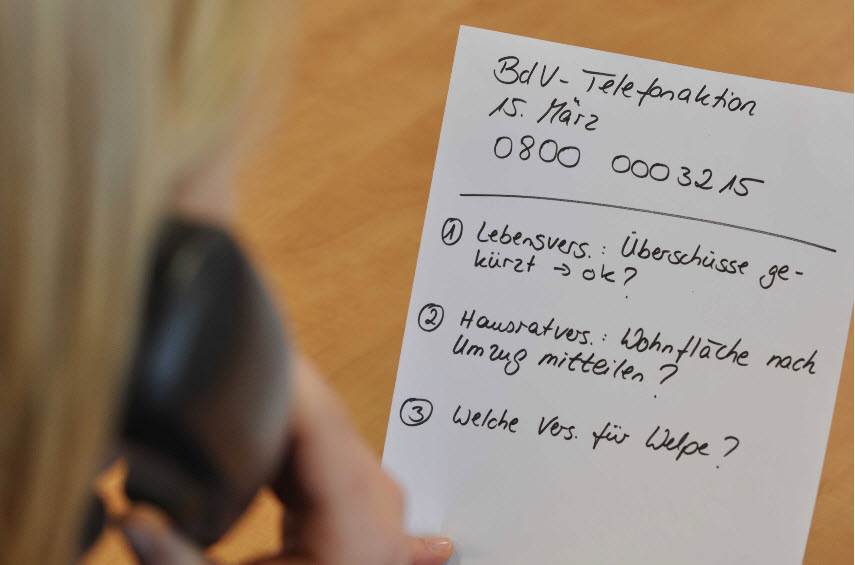 BdV-Telefonaktion
15. März
0800 0003215
① Lebensvers.: Überschüsse ge-
kürzt → ok?
② Hausratvers.: Wohnfläche nach
Umzug mitteilen?
③ Welche Vers. für Welpe?